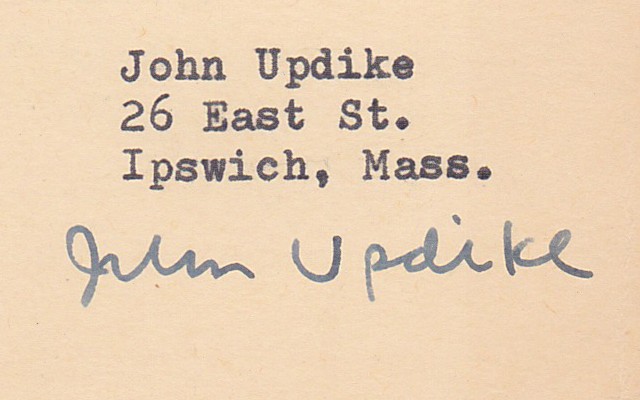 John Updike
26 East St.
Ipswich, Mass.
John Updike